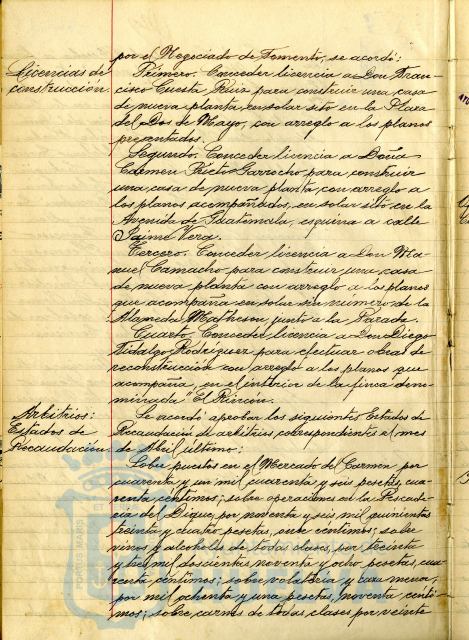 por el Negociado de Fomento, se acordó:
Licencias de
construcción.
Primero. Conceder licencia a Don Fran-
cisco Cuesta Ruiz para construir una casa
de nueva planta en solar sito en la Plaza
del Dos de Mayo, con arreglo a los planos
presentados.
Segundo. Conceder licencia a Doña
Carmen Prieto Garrocho para construir
una casa de nueva planta, con arreglo a
los planos acompañados, en solar sito en la
Avenida de Guatemala, esquina a calle
Jaime Vera.
Tercero. Conceder licencia a Don Ma-
nuel Camacho para construir una casa
de nueva planta con arreglo a los planos
que acompaña en solar sin numero de la
Alameda Matheson, junto a la Parade.
Cuarto. Conceder licencia a Don Diego
Hidalgo Rodriguez para efectuar obras de
reconstrucción con arreglo a los planos que
acompaña, en el interior de la finca deno-
minada "El Rincón.
Arbitrios:
Estados de
Recaudación.
Se acordó aprobar los siguientes Estados de
Recaudación de arbitrios, correspondientes al mes
de Abril último:
Sobre puestos en el Mercado del Carmen por
cuarenta y un mil cuarenta y seis pesetas, cua-
renta centimos; sobre operaciones en la Pescade-
ria del Dique, por noventa y seis mil quinientas
treinta y cuatro pesetas, once céntimos; sobre
vinos y alcoholes de todas clases, por treinta
y tres mil doscientas noventa y ocho pesetas, cua-
renta céntimos; sobre volateria y caza menor,
por mil ochenta y una pesetas, noventa centi-
mos; sobre carnes de todas clases por veinte
PORTUS MARIS